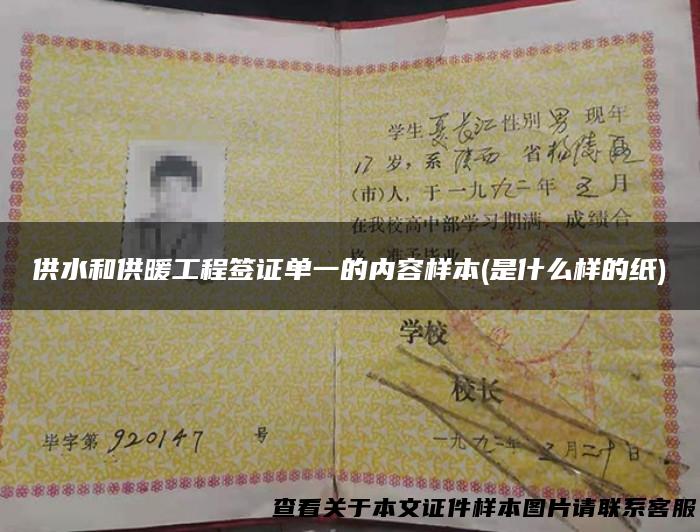 学生夏长江性别男 现年
17岁，系陕西 省杨陵区
(市)人，于一九九二年 五月
在我校高中部学习期满，成绩合
供水和供暖工程签证单一的内容样本(是什么样的纸)
学校
校长
毕字第 920147 号
一九九二年 五月二十日
查看关于本文证件样本图片请联系客服